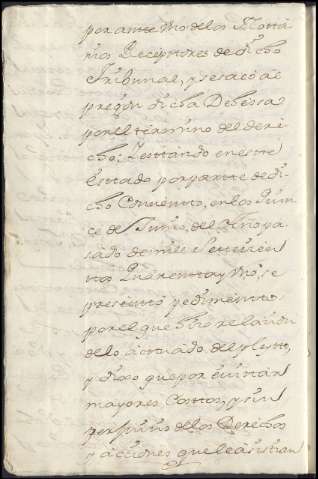 por ante Uno de los Notta
rios Receptores de dicho
Tribunal, y se sacó al
pregon dicha Dehessa
por el termino del dere
cho; Y estando en este
Esttado por parte de di
cho Convento, en los quin
ce de Junio, del Año pa
sado de mil Settecien
tos Quarenta y Uno, se
presentó pedimento
por el que hizo relacion
de lo actuado del pleyto,
y dixo que por evittar
mayores Costtas, y sin
perjuicio de los Derechos
y acciones que le asistian